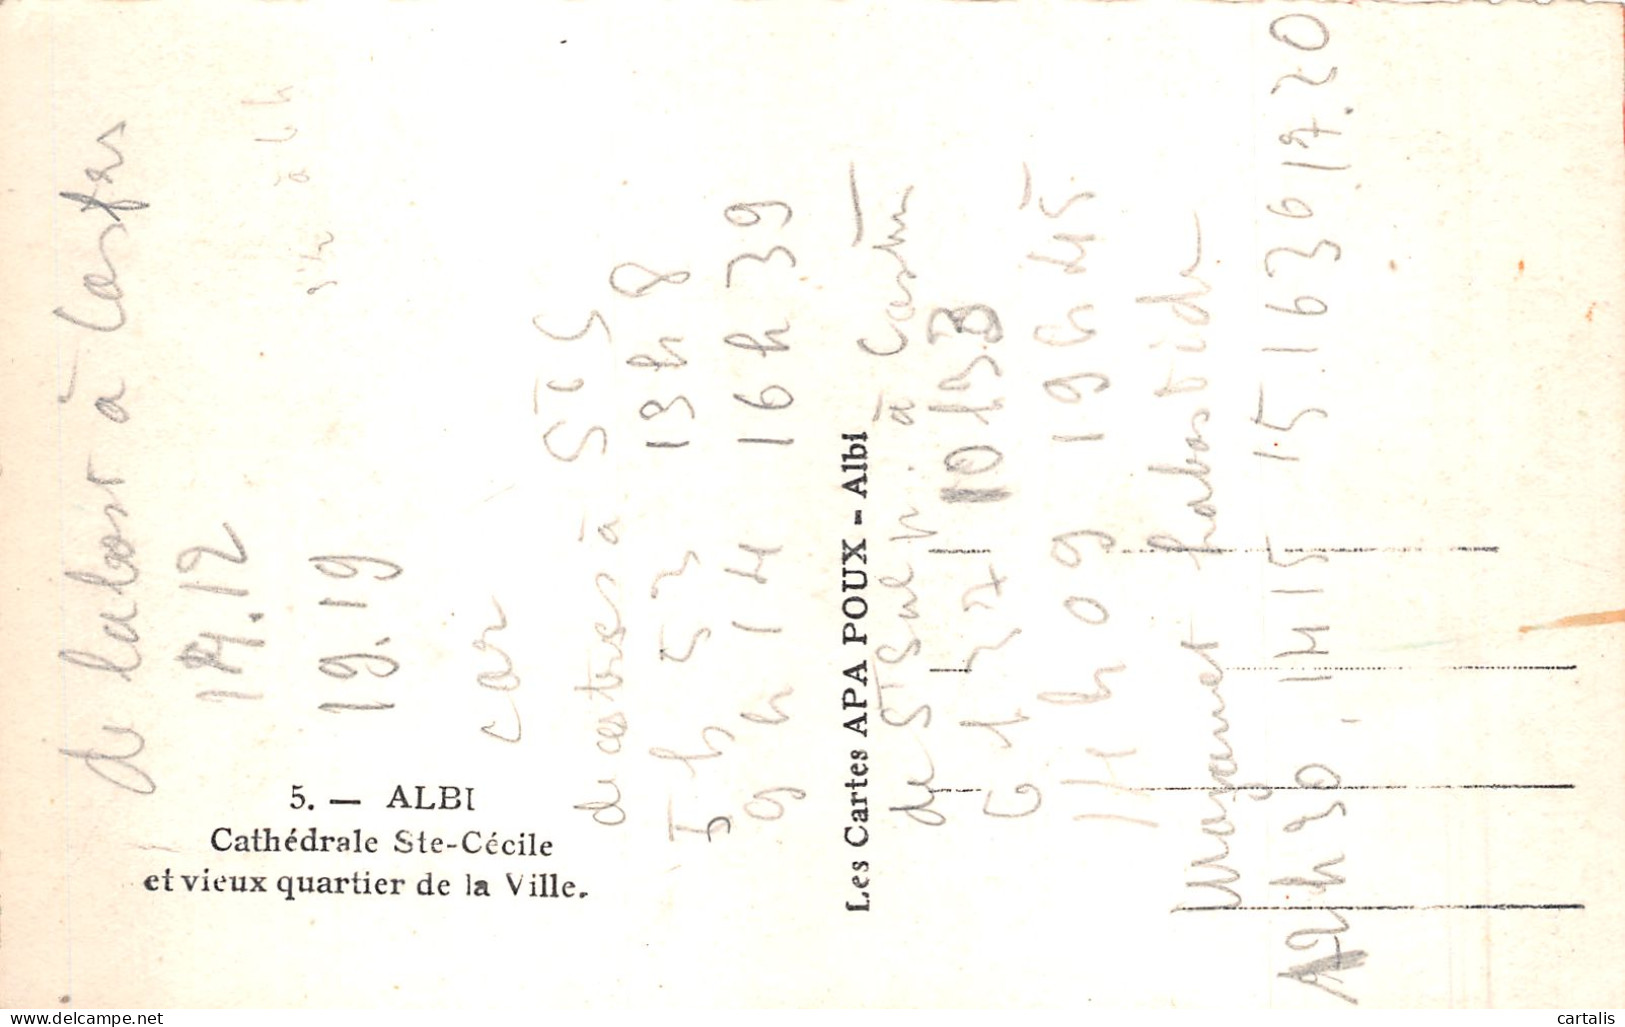 de labast à Castres
14.12
19.19
à 6 h
car
de castres à St S
5 h 52 13 h 8
9 h 14 16 h 39
de St Sulp. à Castres
6 h 27 10 h 33
14 h 09 19 h 45
Mazamet Labastide
12 h 30, 14 15 15 15 1636 17.20
5. — ALBI
Cathédrale Ste-Cécile
et vieux quartier de la Ville.
Les Cartes APA POUX - Albi
cartalis
www.delcampe.net